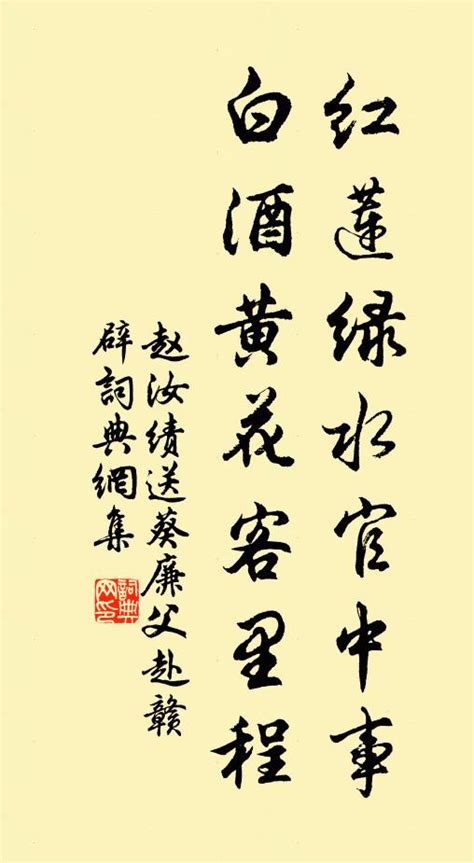 红莲绿水官中事
白酒黄花客里程
赵汝绩送葵廉父赴赣
辟词典網集
詞典網印